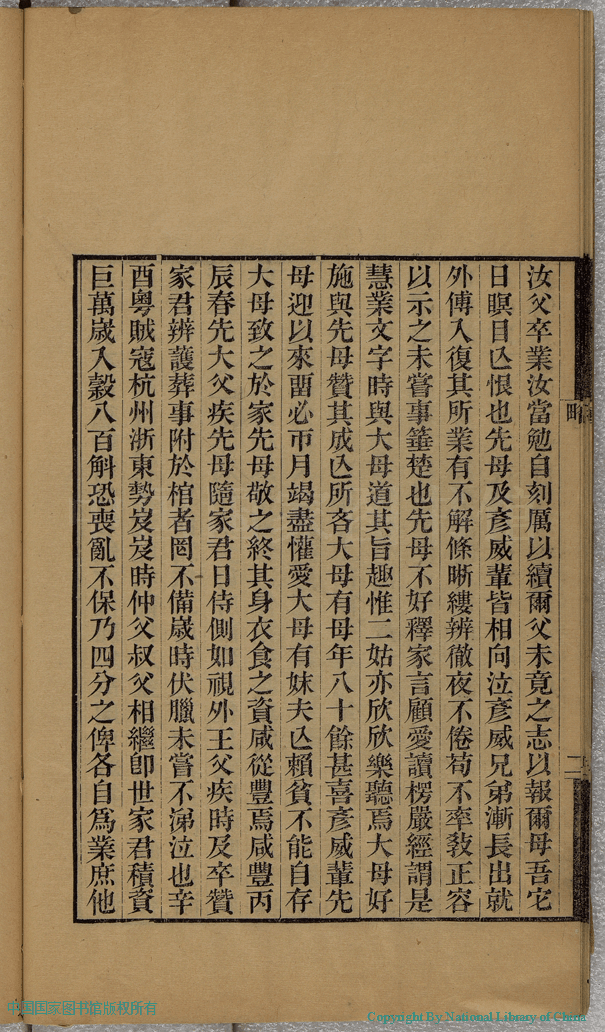 汝父卒業汝當勉自刻厲以續爾父未竟之志以報爾母吾宅
日瞑目亾恨也先母及彥威輩皆相向泣彥威兄弟漸長出就
外傅入復其所業有不解條晰縷辨徹夜不倦苟不率敎正容
以示之未嘗事箠楚也先母不好釋家言顧愛讀楞嚴經謂是
慧業文字時與大母道其旨趣惟二姑亦欣欣樂聽焉大母好
施與先母贊其成亾所吝大母有母年八十餘甚喜彥威輩先
母迎以來畱必帀月竭盡懽愛大母有妹夫亾賴貧不能自存
大母致之於家先母敬之終其身衣食之資咸從豐焉咸豐丙
辰春先大父疾先母隨家君日侍側如視外王父疾時及卒贊
家君辨護葬事附於棺者罔不備歲時伏臘未嘗不涕泣也辛
酉粵賊寇杭州浙東勢岌岌時仲父叔父相繼卽世家君積資
巨萬歲入穀八百斛恐喪亂不保乃四分之俾各自爲業庶他
略
二
中国国家图书馆版权所有
Copyright By National Library of China